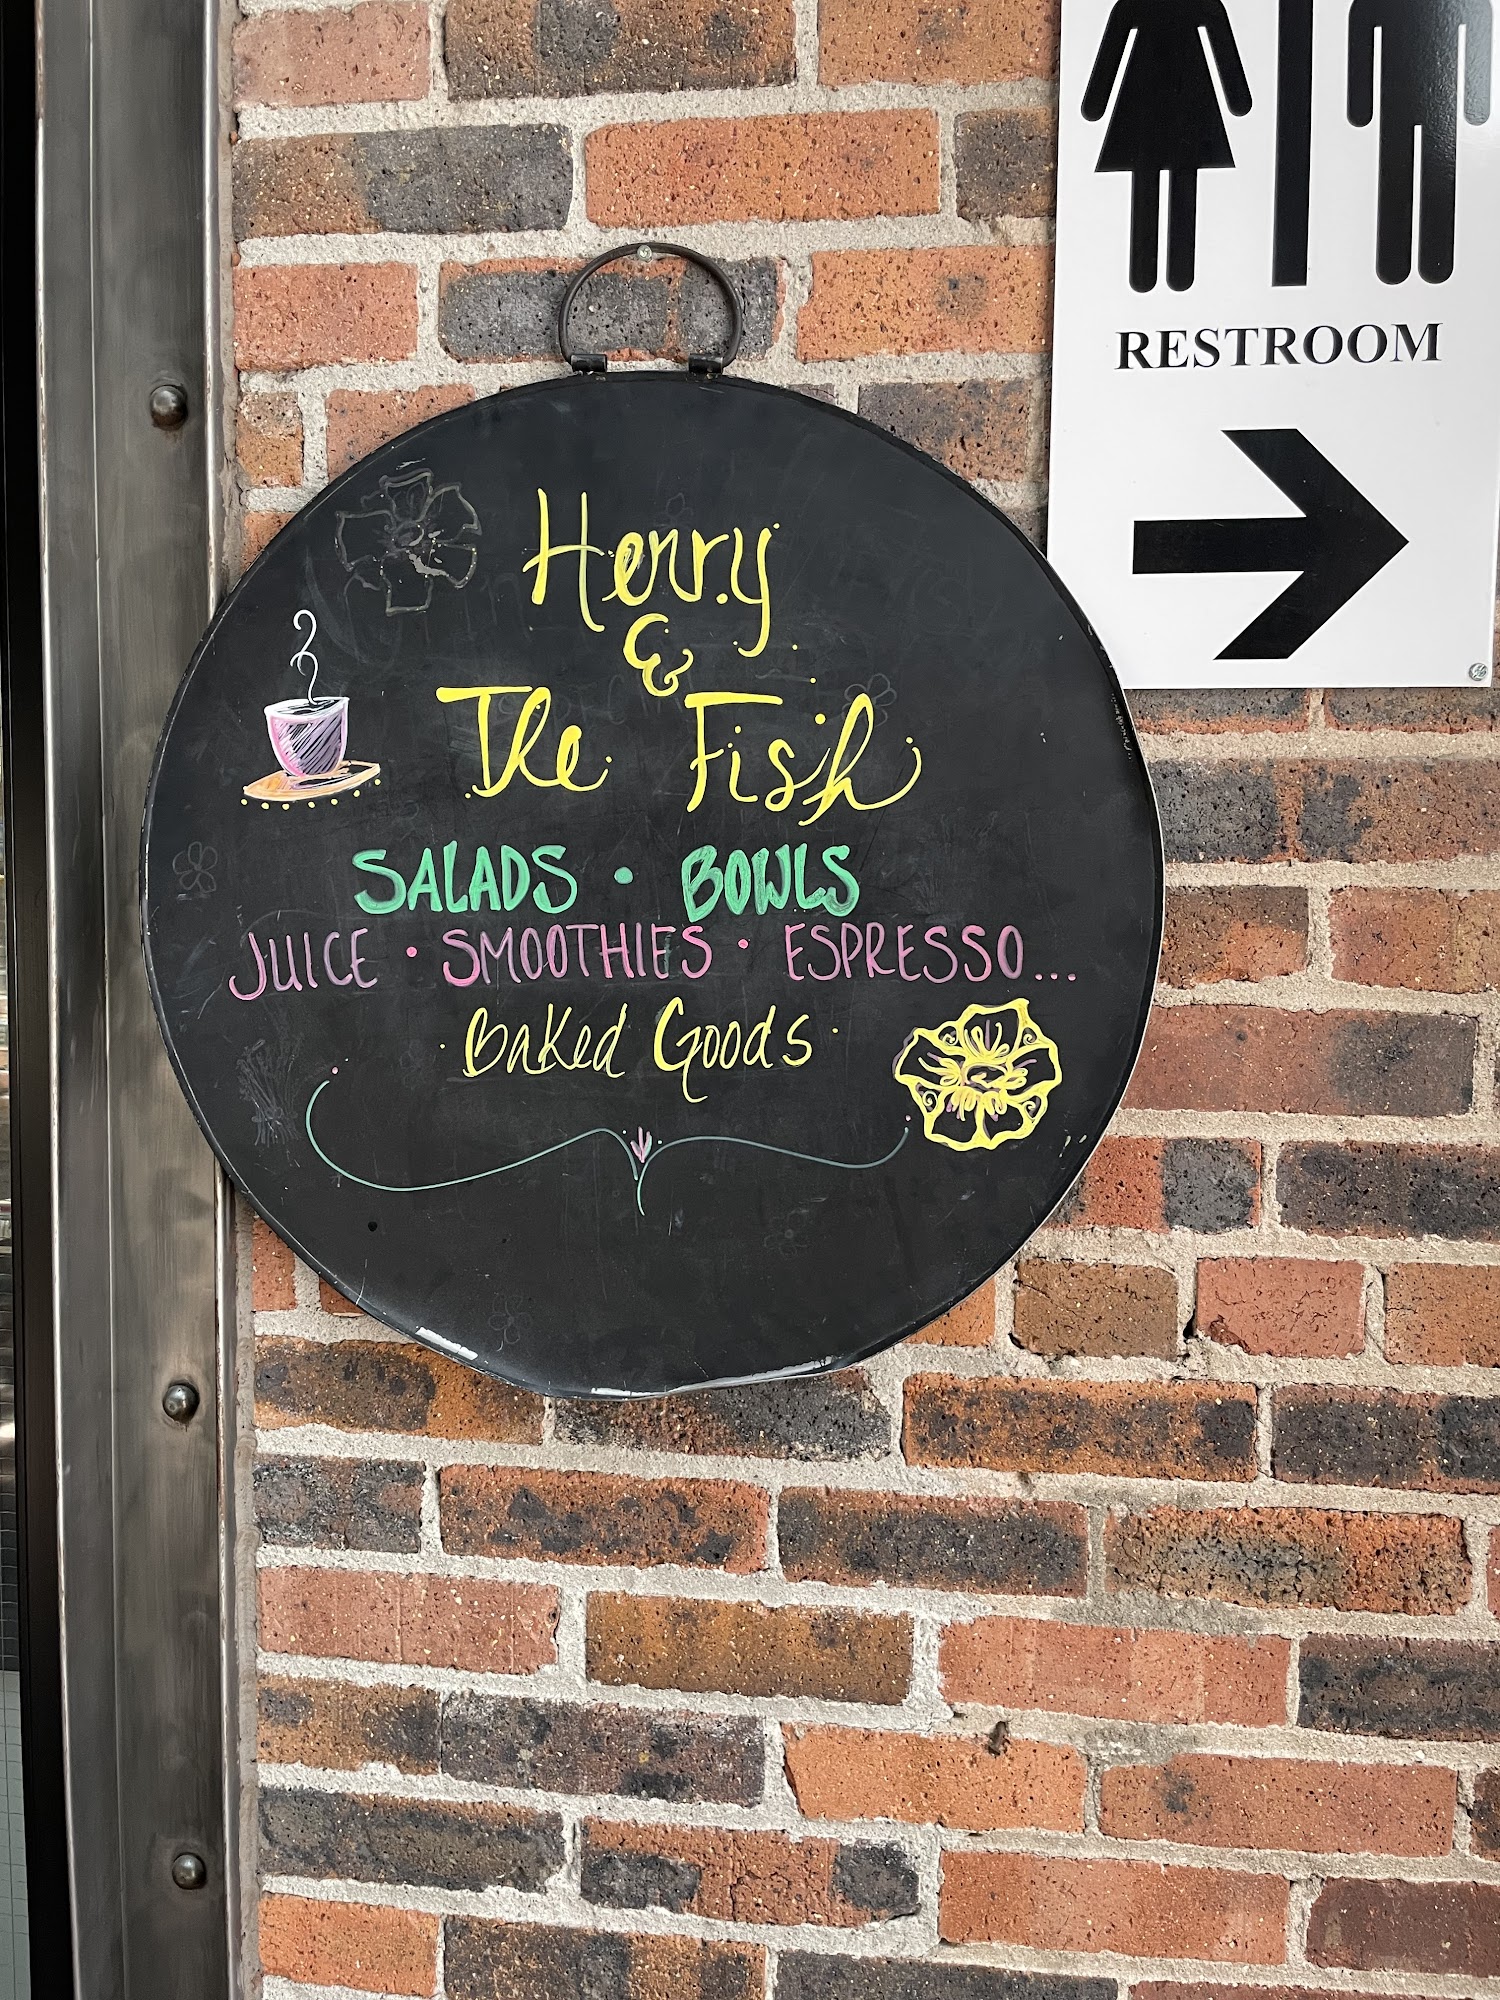 Henry
&
The Fish
SALADS • BOWLS
JUICE • SMOOTHIES • ESPRESSO...
• Baked Goods •
RESTROOM